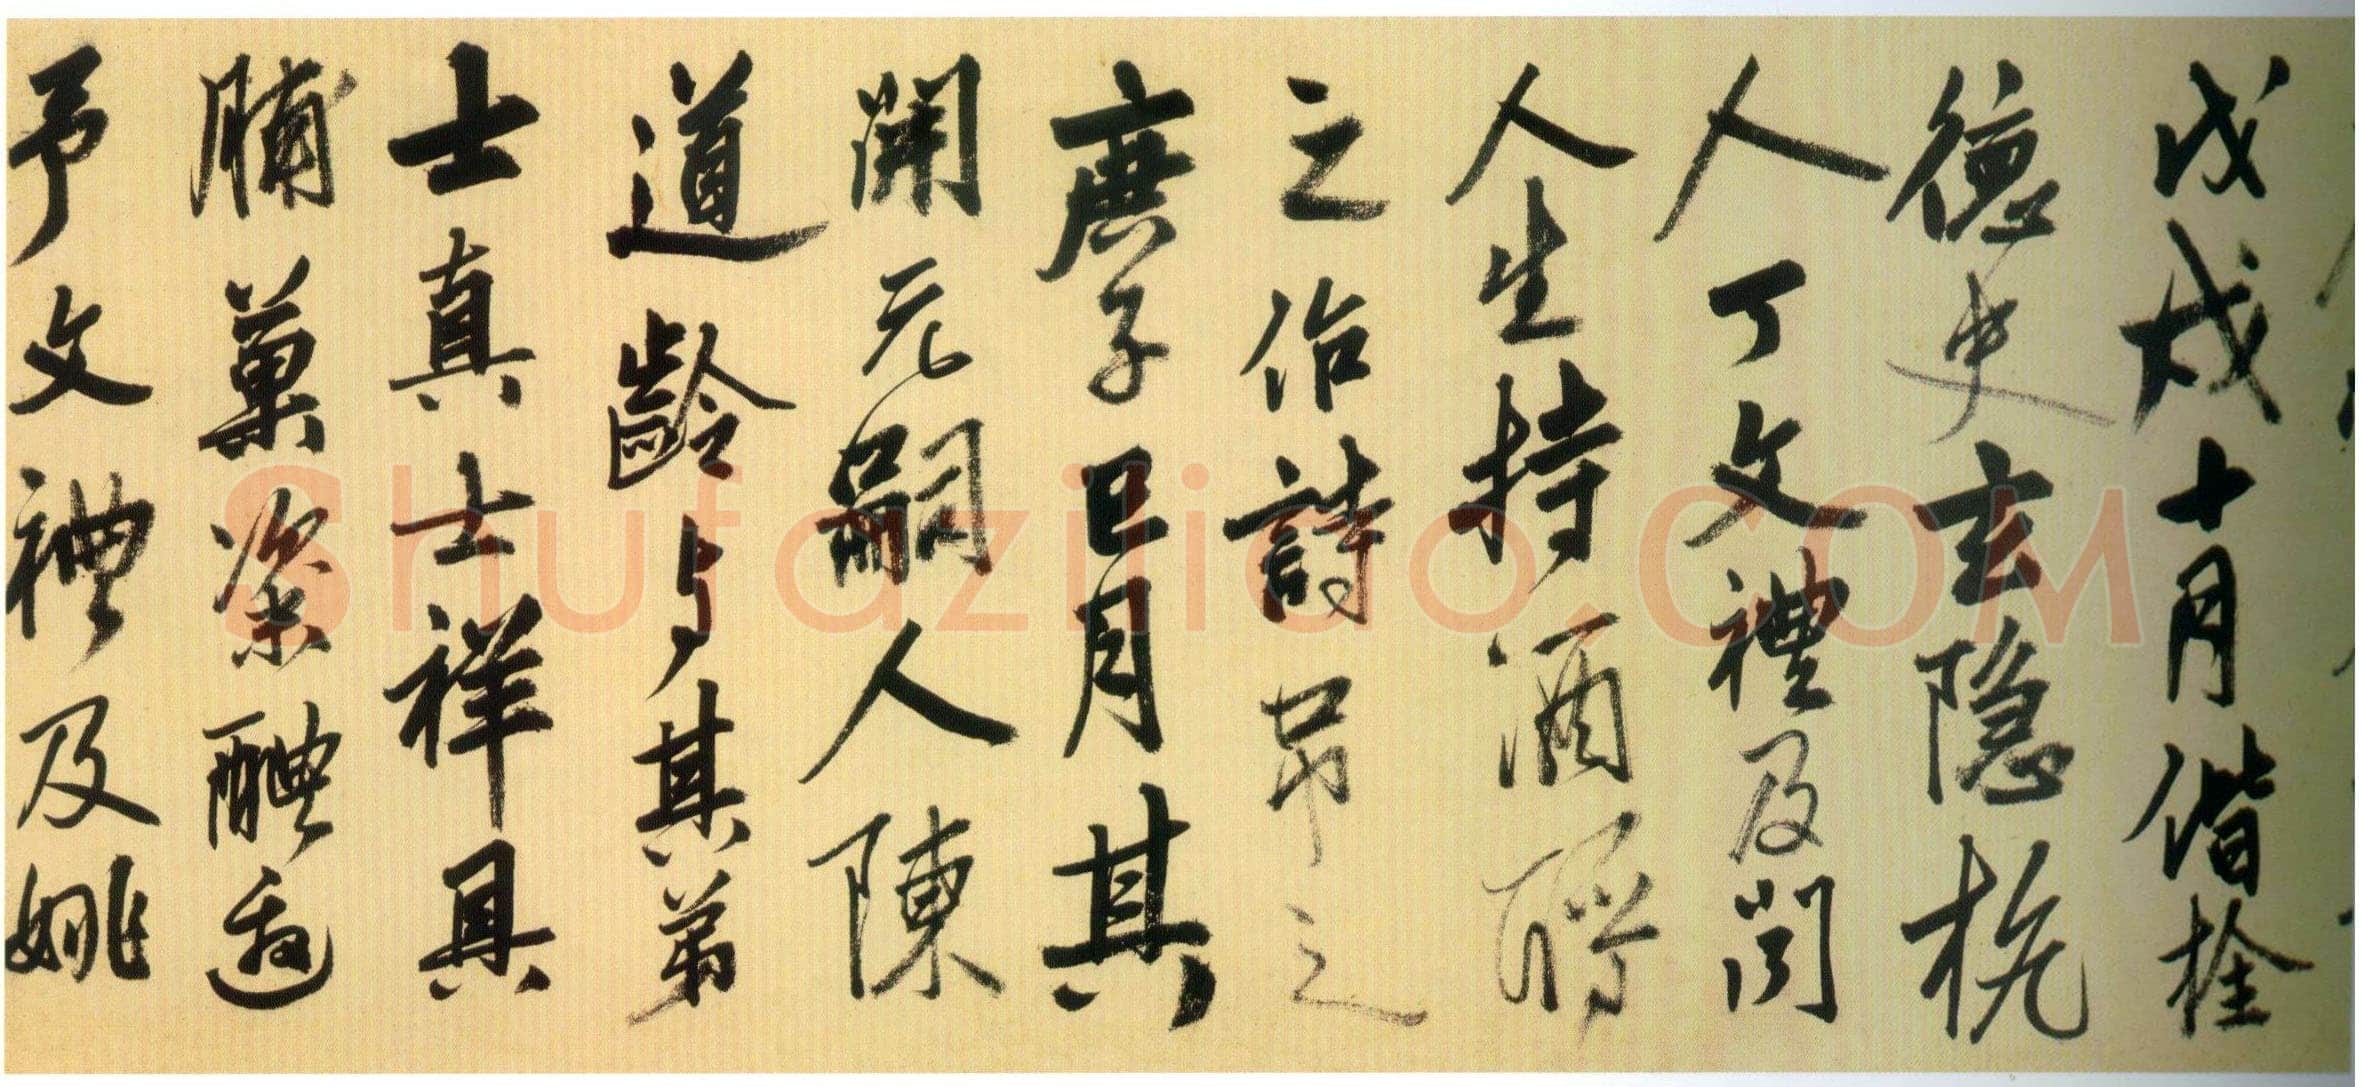 戊戌十月偕拴
德史玄隐杭
人丁文禮及閔
人生持酒酹
之作詩吊之
庚子巳月其
開元嗣人陳
道齡與其弟
士真士祥具
脯菓粢醴邀
予文禮及姚
Shufaziliao.COM